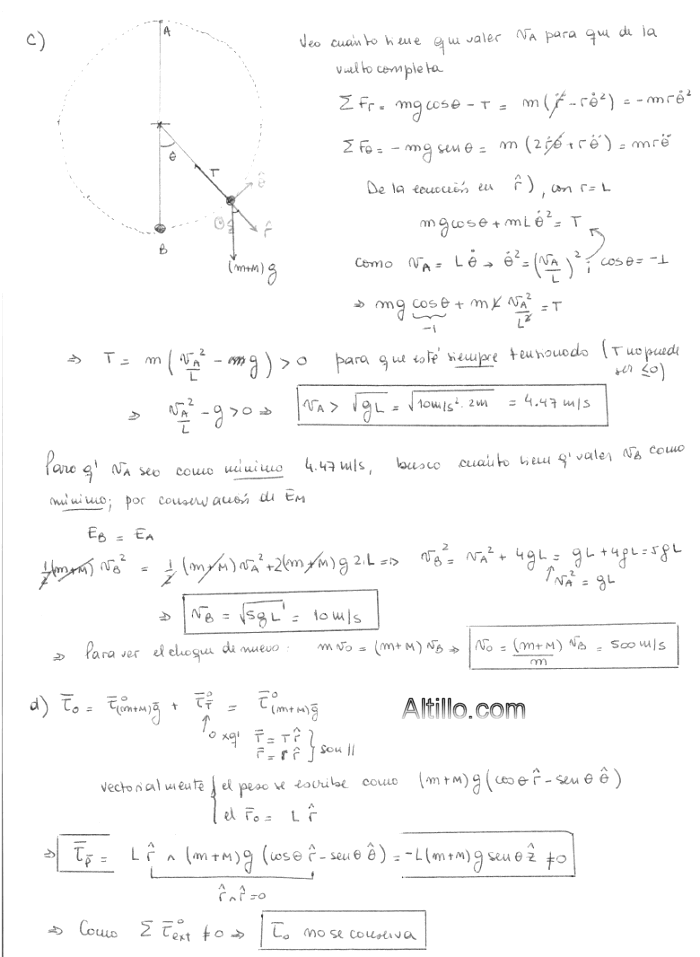 c)
A
θ
T
θ̂
r̂
B
(m+M)g
Veo cuánto tiene que valer v_A para que dé la
vuelta completa
Σ Fr = mg cos θ - T = m(r̈ - rθ̇²) = -mrθ̇²
Σ Fθ = -mg sen θ = m(2ṙθ̇ + rθ̈) = mrθ̈
De la ecuación en r̂), con r=L
mg cos θ + mLθ̇² = T
como v_A = Lθ̇ → θ̇² = (v_A/L)² ; cos θ = -1
⇒ mg cos θ + mL v_A²/L² = T
-1
⇒ T = m(v_A²/L - g) > 0 para que esté siempre tensionado (T no puede
ser ≤0)
⇒ v_A²/L - g > 0 ⇒ v_A > √gL = √10m/s².2m = 4.47 m/s
Para q' v_A sea como mínimo 4.47 m/s, busco cuánto tiene q' valer v_B como
mínimo; por conservación de E_M
E_B = E_A
½(m+M) v_B² = ½(m+M) v_A² + 2(m+M) g 2.L ⇒ v_B² = v_A² + 4gL = gL + 4gL = 5gL
v_A² = gL
⇒ v_B = √5gL = 10 m/s
⇒ Para ver el choque de nuevo: m v₀ = (m+M) v_B ⇒ v₀ = (m+M)/m v_B = 500 m/s
d) τ̄₀ = τ̄⁰(m+M)ḡ + τ̄⁰T̄ = τ̄⁰(m+M)ḡ
0 xq' T̄ = T r̂
r̄ = r r̂ } son //
Altillo.com
vectorialmente { el peso se escribe como (m+M)g(cos θ r̂ - sen θ θ̂)
el r̄₀ = L r̂
⇒ τ̄p̄ = L r̂ ∧ (m+M)g (cos θ r̂ - sen θ θ̂) = -L(m+M)g sen θ ẑ ≠ 0
r̂ ∧ r̂ = 0
⇒ Como Σ τ̄⁰ext ≠ 0 ⇒ L̄₀ no se conserva